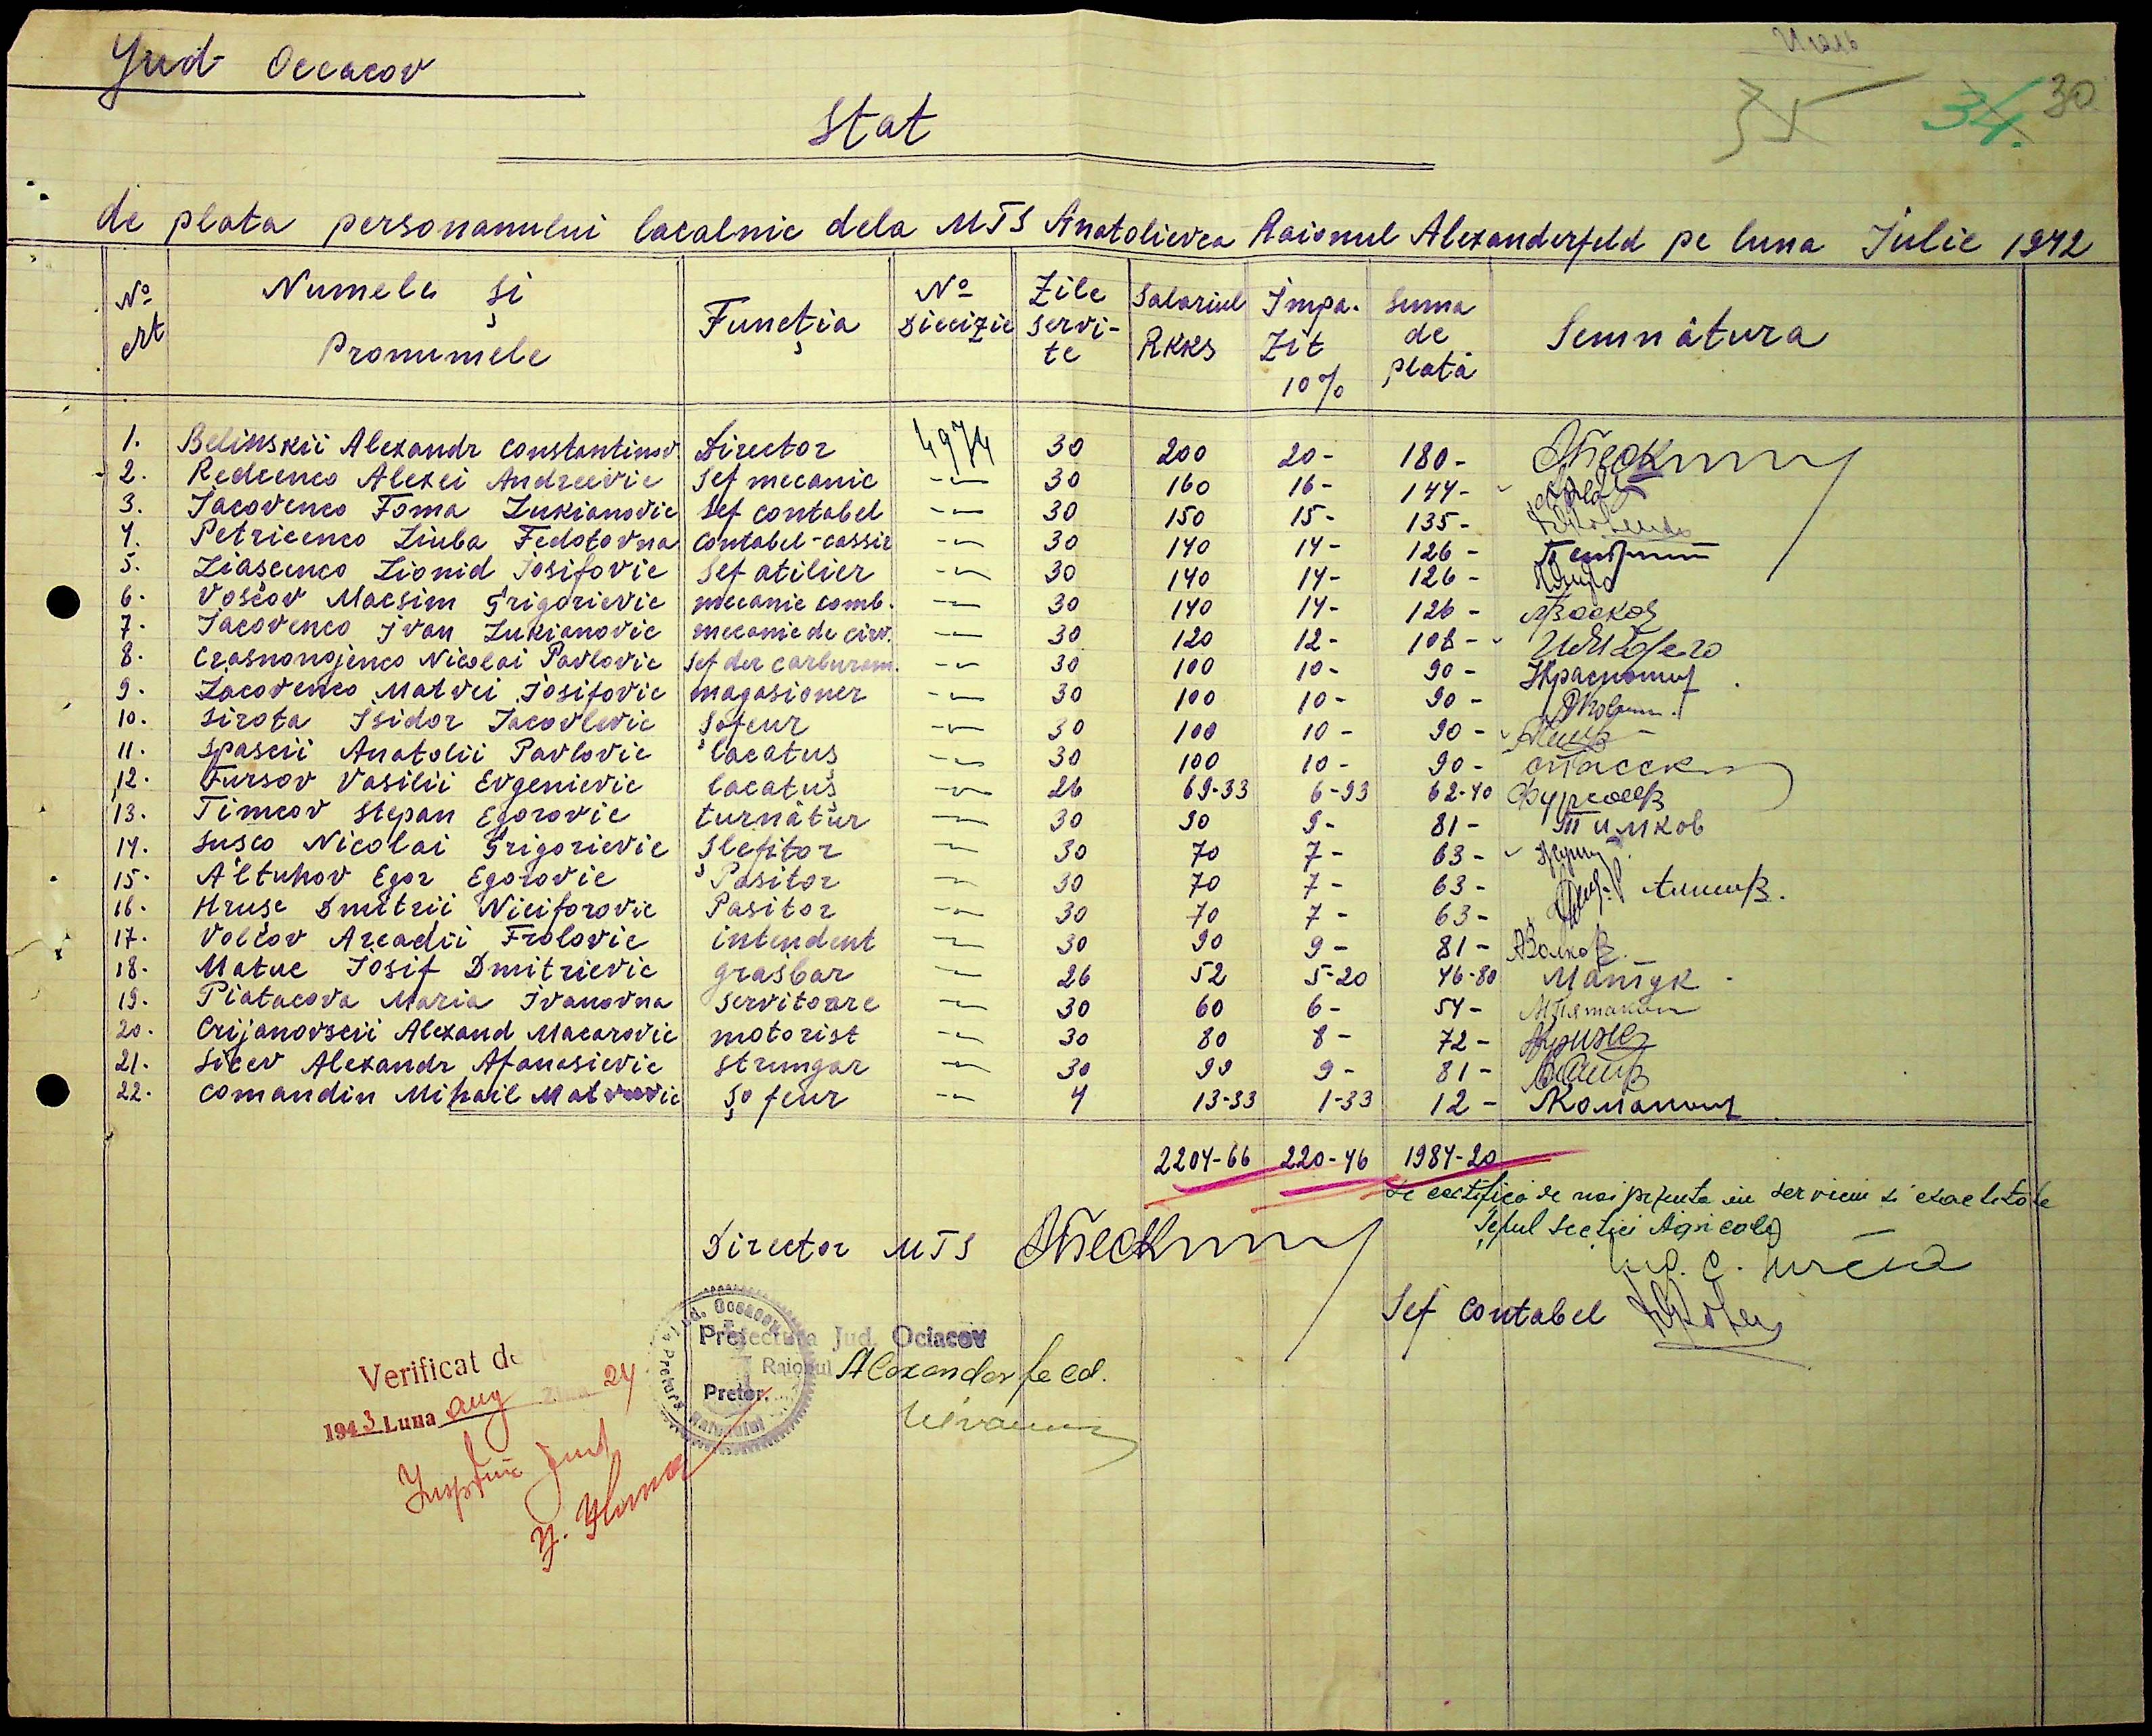 Jud Occacov
Июль
34. 30
Stat
de plata personanului localnic dela MTS Anatolievca Raionul Alexanderfeld pe luna Julie 1942
№ crt Numele și Pronumele Funcția № Diecizie Zile servi-te Salariul RKKS Impa-zit 10% Suma de plată Semnătura
1. Belinskii Alexandr Constantinov Director 4974 30 200 20- 180-
2. Redcenco Alexei Andreevic Sef mecanic -〃- 30 160 16- 144-
3. Jacovenco Foma Lukianovic Sef contabel -〃- 30 150 15- 135-
4. Petricenco Liuba Fedotovna Contabel-cassir -〃- 30 140 14- 126-
5. Liascenco Lionid Josifovic Sef atilier -〃- 30 140 14- 126-
6. Voscov Macsim Grigorievic mecanic comb. -〃- 30 140 14- 126-
7. Jacovenco Jvan Lukianovic mecanic de circ. -〃- 30 120 12- 108-
8. Crasnonojenco Nicolai Pavlovic Sef der carburan. -〃- 30 100 10- 90-
9. Iacovenco Matvei Josifovic magasioner -〃- 30 100 10- 90-
10. Sirota Isidor Jacovlevic Șofeur -〃- 30 100 10- 90-
11. Spascii Anatolii Pavlovic lacatuș -〃- 30 100 10- 90-
12. Fursov Vasilii Evgenievic lacatuș -〃- 26 69-33 6-93 62-40
13. Timcov Stepan Egorovic turnătur -〃- 30 90 9- 81- Тимков
14. Susco Nicolai Grigorievic Șlefitor -〃- 30 70 7- 63-
15. Altuhov Egor Egorovic Pasitor -〃- 30 70 7- 63-
16. Hruse Dmitrii Niciforovic Pasitor -〃- 30 70 7- 63-
17. Volcov Arcadii Frolovic intendent -〃- 30 90 9- 81- АВолков.
18. Matuc Josif Dmitrievic grasbar -〃- 26 52 5-20 46-80 Матук
19. Piatacova Maria Jvanovna Servitoare -〃- 30 60 6- 54-
20. Crijanovscii Alexand Macarovic motorist -〃- 30 80 8- 72-
21. Sicev Alexandr Afanasievic Strungar -〃- 30 90 9- 81-
22. Comandin Mihail Matveevic Șofeur -〃- 4 13-33 1-33 12-
2204-66 220-46 1984-20
Se certifică de noi prezenta in serviciu si exactitate
Șeful Secției Agricole
Director MTS
Ing. C.
Sef Contabel
Prefectura Jud. Ociacov
Raionul Alexanderfeld.
Pretor.
Verificat de
1943 Luna aug Ziua 24